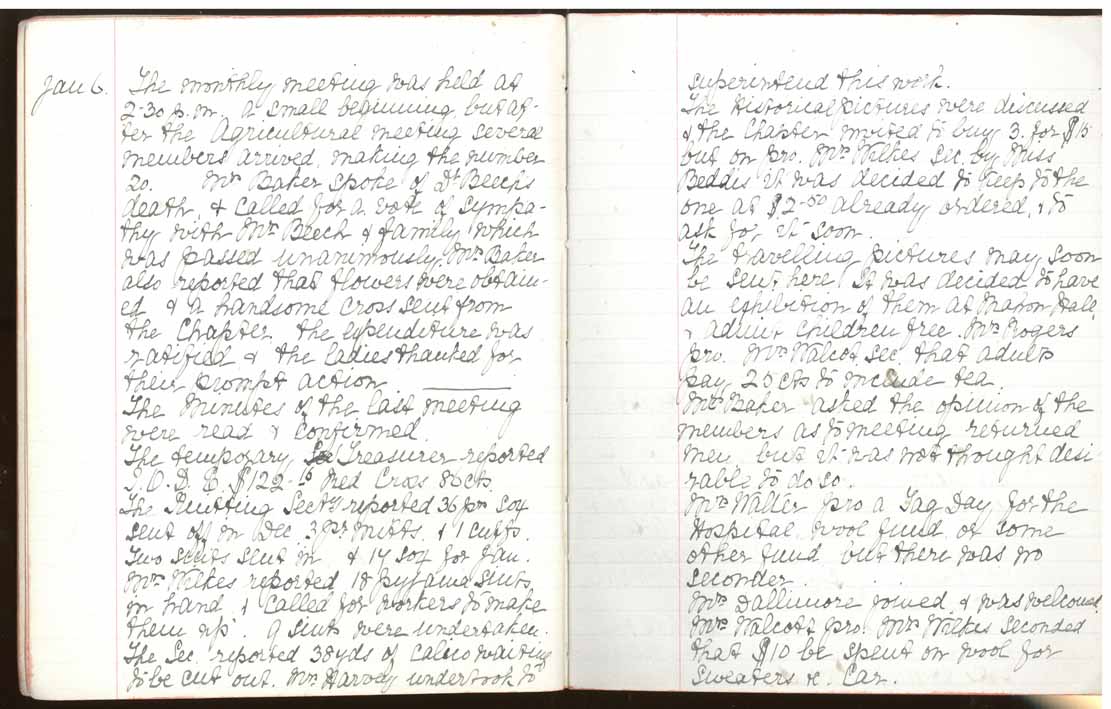 Jan 6. The monthly meeting was held at
2-30 p.m. A small beginning, but af-
ter the Agricultural meeting several
members arrived, making the number
20. Mrs Baker spoke of Dr Beech's
death, & called for a vote of sympa-
thy with Mrs Beech & family which
was passed unanimously. Mrs Baker
also reported that flowers were obtain-
ed & a handsome cross sent from
the Chapter. the expenditure was
ratified & the ladies thanked for
their prompt action.
The Minutes of the last meeting
were read & confirmed.
The temporary Treasurer reported
I.O.D.E. $122- Red Cross 80cts
The Knitting Secty reported 36 prs sox
sent off in Dec. 3 prs mitts. & 1 cuffs.
Two scarfs sent in & 17 sox for Jan.
Mrs Wilkes reported 18 pyjama suits
in hand, & called for workers to make
them up. 9 suits were undertaken.
The Sec. reported 38yds of calico waiting
to be cut out. Mrs Harvey undertook to
superintend this work.
The Historical pictures were discussed
& the Chapter invited to buy 3. for $15
but on pro. Mrs Wilkes Sec. by Miss
Beddis it was decided to keep to the
one at $2-50 already ordered, & to
ask for it soon.
The travelling pictures may soon
be sent here. It was decided to have
an exhibition of them at Mahon Hall
& admit children free. Mrs Rogers
pro. Mrs Walcot Sec. that adults
pay 25 cts to include tea.
Mrs Baker asked the opinion of the
members as to meeting returned
men, but it was not thought desi-
rable to do so.
Mrs Walter pro a Tag Day for the
Hospital wool fund or some
other fund but there was no
seconder.
Mrs Dallimore joined, & was welcomed
Mrs Walcott pro. Mrs Wilkes seconded
that $10 be spent on wool for
Sweaters &c. Car.